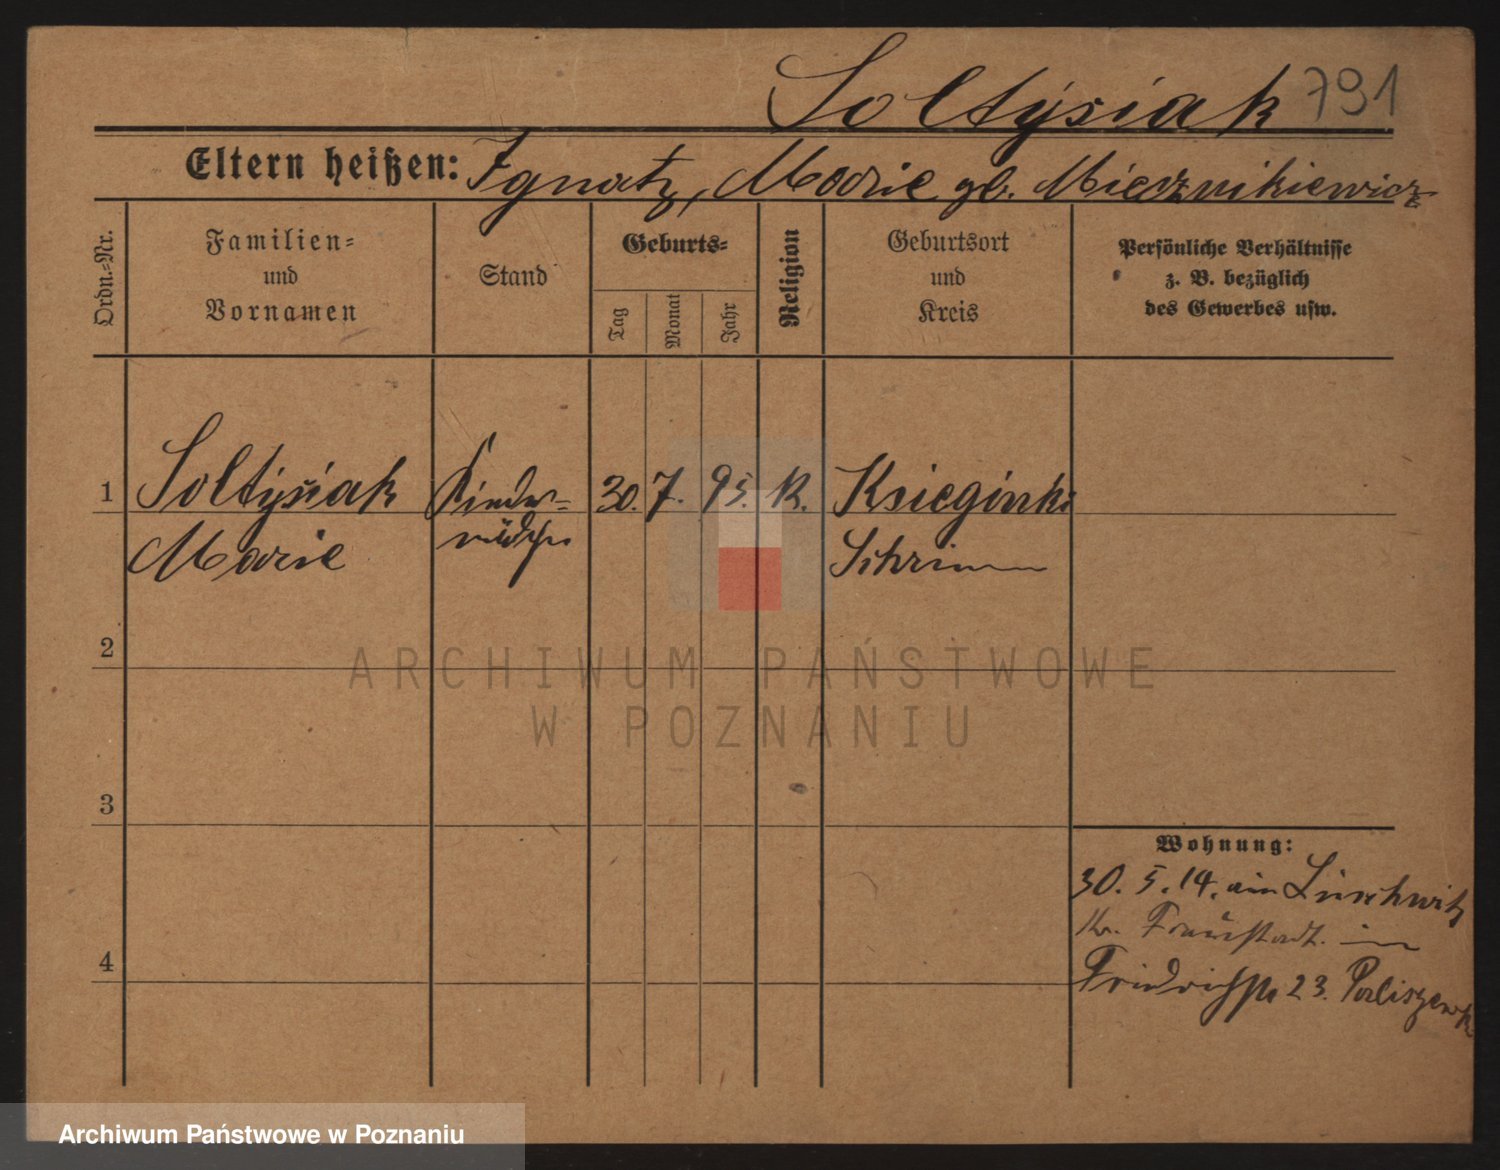 Soltysiak 791
Eltern heißen: Ignatz, Marie gb. Miecznikiewicz
Ordn.-Nr.
Familien-
und
Vornamen
Stand
Geburts-
Tag
Monat
Jahr
Religion
Geburtsort
und
Kreis
Persönliche Verhältnisse
z. B. bezüglich
des Gewerbes usw.
1 Soltysiak Kinder- 30. 7. 95. K. Ksieginki
Marie mädchen Schrimm
2
3
4
Wohnung:
30. 5. 14. aus Luschwitz
Kr. Fraustadt. in
Friedrichstr 23.
ARCHIWUM PAŃSTWOWE
W POZNANIU
Archiwum Państwowe w Poznaniu